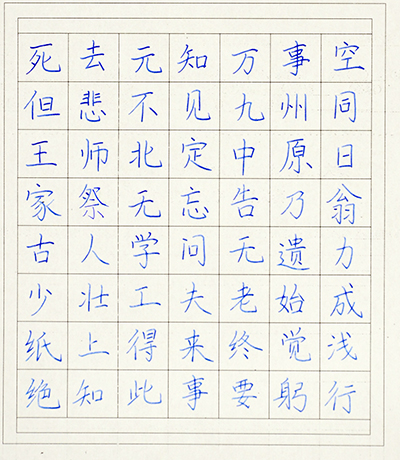 死去元知万事空
但悲不见九州同
王师北定中原日
家祭无忘告乃翁
古人学问无遗力
少壮工夫老始成
纸上得来终觉浅
绝知此事要躬行